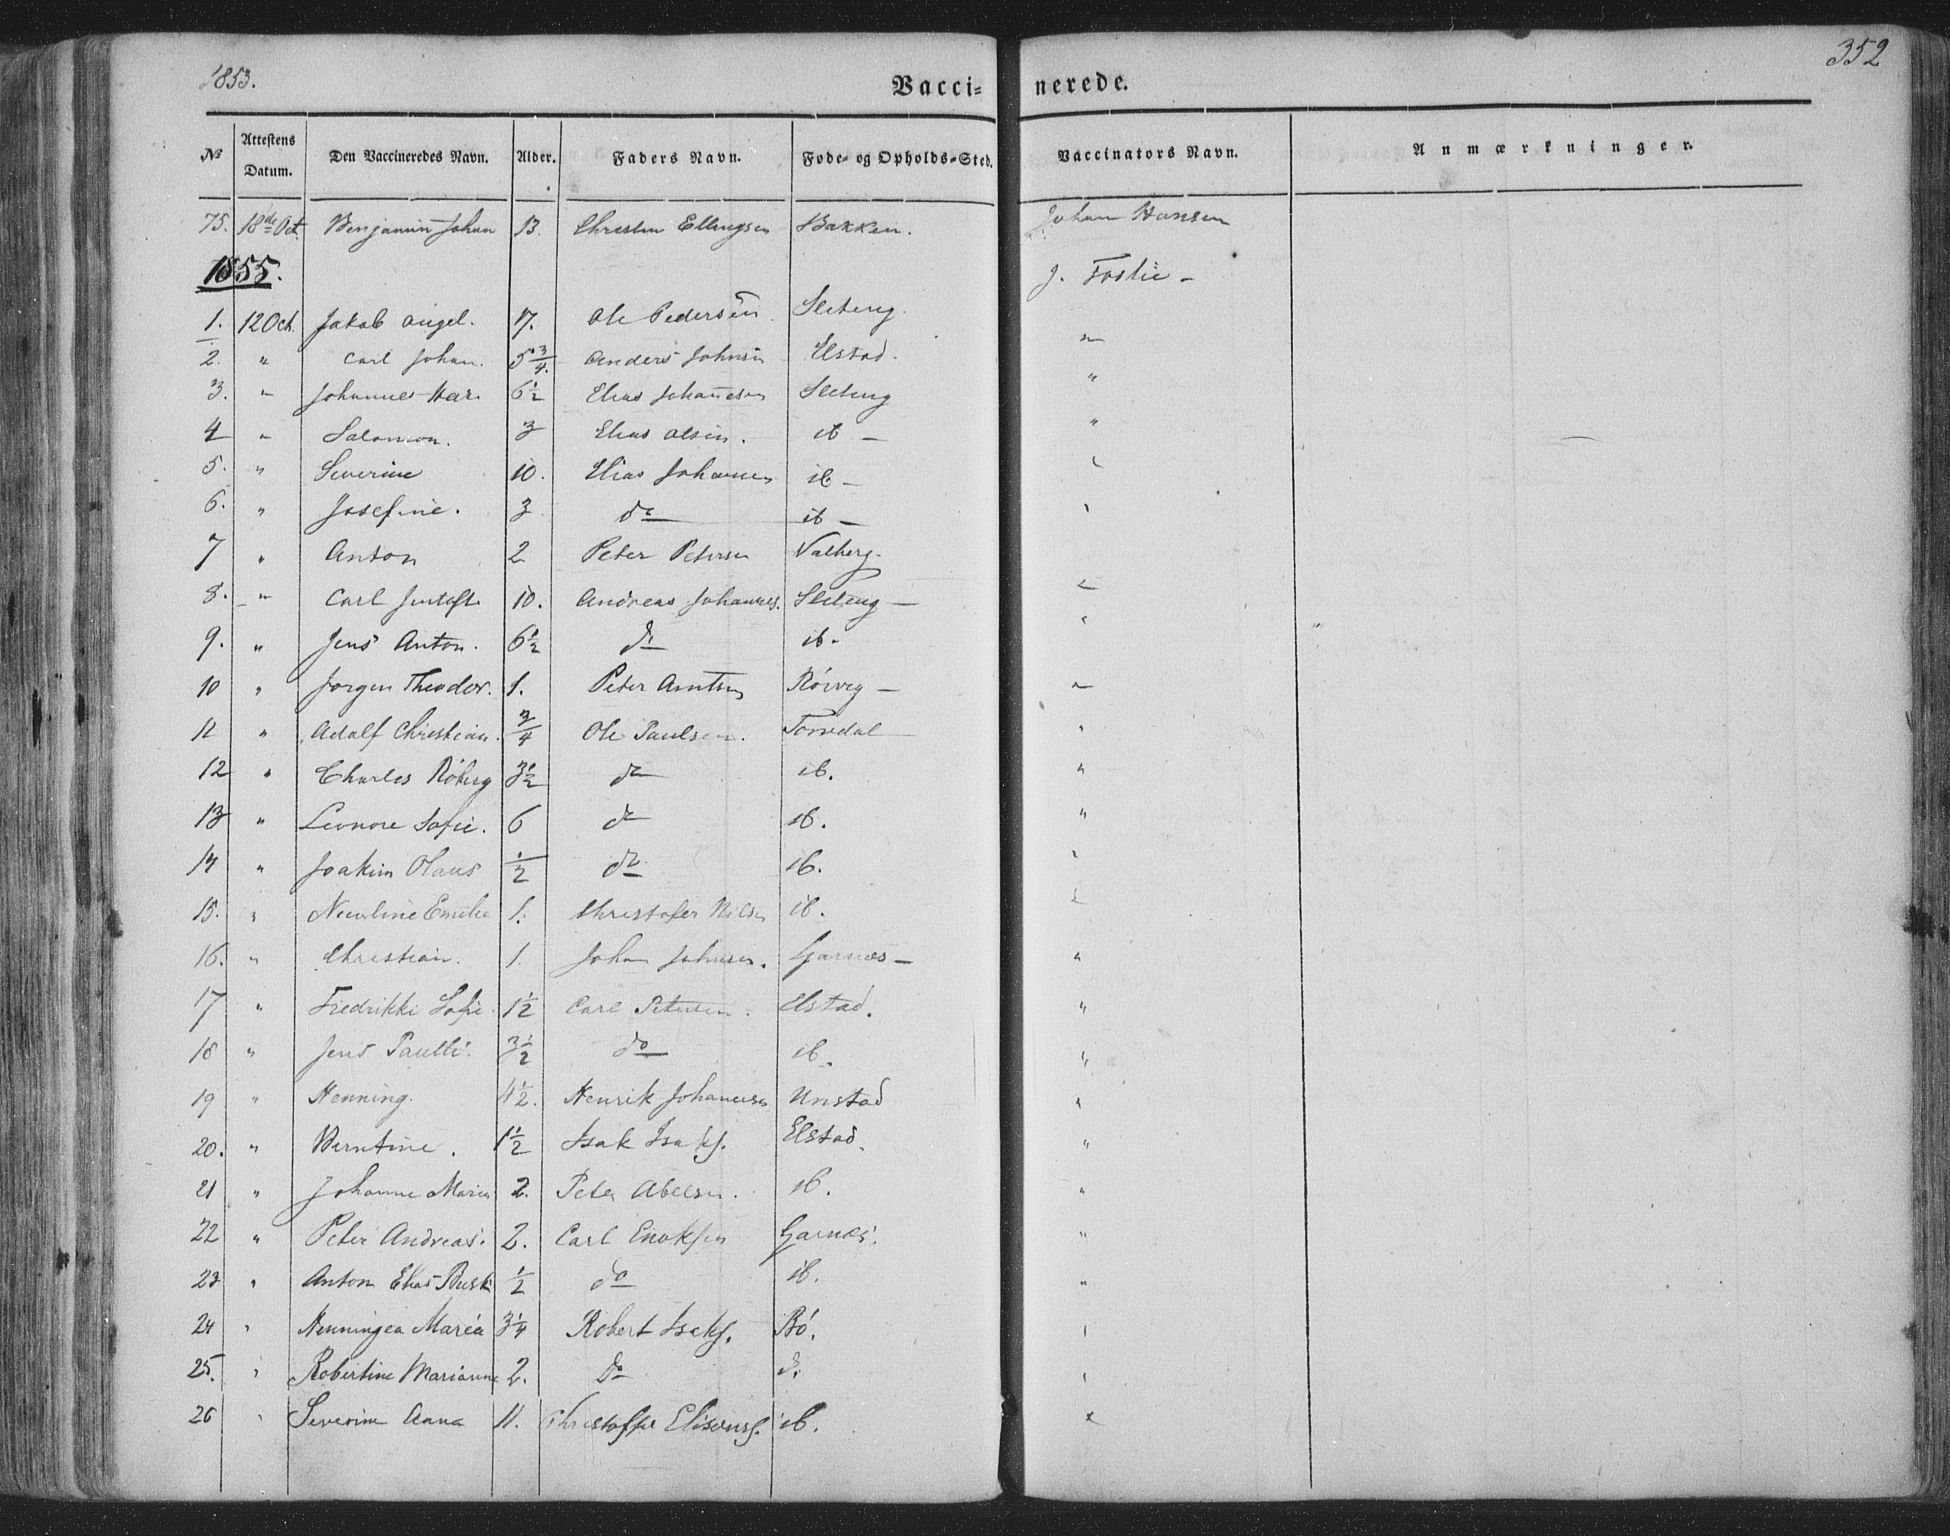 1853. Vaccinerede. 352
№ Attestens Datum. Den Vaccineredes Navn. Alder. Faders Navn. Fode- og Opholds-Sted. Vaccinators Navn. Anmærkninger.
75. 18de Oct. Benjamin Johan 13. Ellingsen Bakken. Johan Hansen
1855. J. Foslie -
1. 12 Oct. Jakob Angel. 17. Ole Pedersen.
2. " Carl Johan. 5 3/4. Anders Johnsen Elstad. "
3. " Johannes 6 1/2 Elias Johannesen "
4 " Salomon. 3 Elias Olsen. ib - "
5. " Severine 10. Elias Johannes ib - "
6. " Josefine. 3 do ib - "
7 " Anton 2 Peter Petersen Valberg-
8. " Carl Jentoft 10. Andreas Johannes. - "
9. " Jens Anton. 6 1/2 do ib. "
10 " Jorgen Theodor. 1. Peter Arntsen Röivig - "
11 " Adolf Christian. 3/4 Ole Paulsen. Torvdal "
12 " Charles 3 1/2 do ib. "
13 " Leonore Sofie. 6 do ib. "
14 " Joakim Olaus 1/2 do ib. "
15. " Emelie 1. Christofer Nilsen ib. "
16. " Christian. 1. Johan Johnsen. Garnæs - "
17 " Fredrikke Sofie 1 1/2 Carl Petersen. Elstad. "
18 " Jens Paulli. 3 1/2 do ib. "
19 " Henning. 4 1/2. Henrik Johannesen Unstad "
20. " Berntine. 1 1/2 Isak Isaks. Elstad. "
21 " Johanne Maria 2. Peter Abelsen. ib. "
22 " Peter Andreas. 2. Carl Enoksen Garnæs. "
23 " Anton Elias 1/2 do ib. "
24 " Henningea Maria 3 1/4 Robert Isaks. Bö. "
25. " Robertine Marianne 2. do d. "
26 " Severine Anna 11. Christoffer Elisæus. ib. "